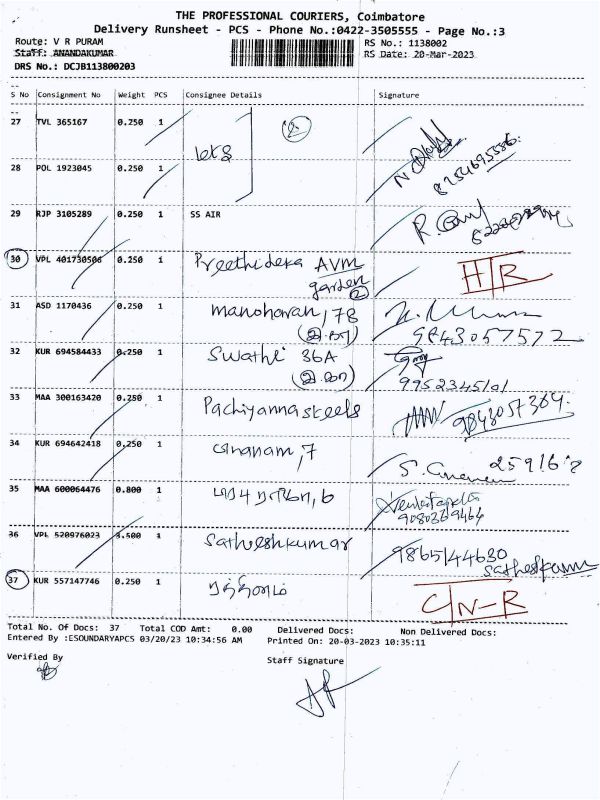 THE PROFESSIONAL COURIERS, Coimbatore
Delivery Runsheet - PCS - Phone No.:0422-3505555 - Page No.:3
Route: V R PURAM
RS No.: 1138002
Staff: ANANDAKUMAR
RS Date: 20-Mar-2023
DRS No.: DCJB113800203
S No Consignment No Weight PCS Consignee Details Signature
27 TVL 365167 0.250 1
28 POL 1923045 0.250 1
29 RJP 3105289 0.250 1 SS AIR
30 VPL 401730506 0.250 1 Preethideka AVM
garden
31 ASD 1170436 0.250 1 manoharan, 78
9843057572
32 KUR 694584433 0.250 1 Swathi 36A
9952345101
33 MAA 300163420 0.250 1 Pachiyanna steels
9843057364
34 KUR 694642418 0.250 1
35 MAA 600064476 0.800 1
9080369464
36 VPL 520976023 3.500 1 Satheeshkumar 9865144630
37 KUR 557147746 0.250 1 C/N-R
Total No. Of Docs: 37 Total COD Amt: 0.00 Delivered Docs: Non Delivered Docs:
Entered By :ESOUNDARYAPCS 03/20/23 10:34:56 AM Printed On: 20-03-2023 10:35:11
Verified By
Staff Signature